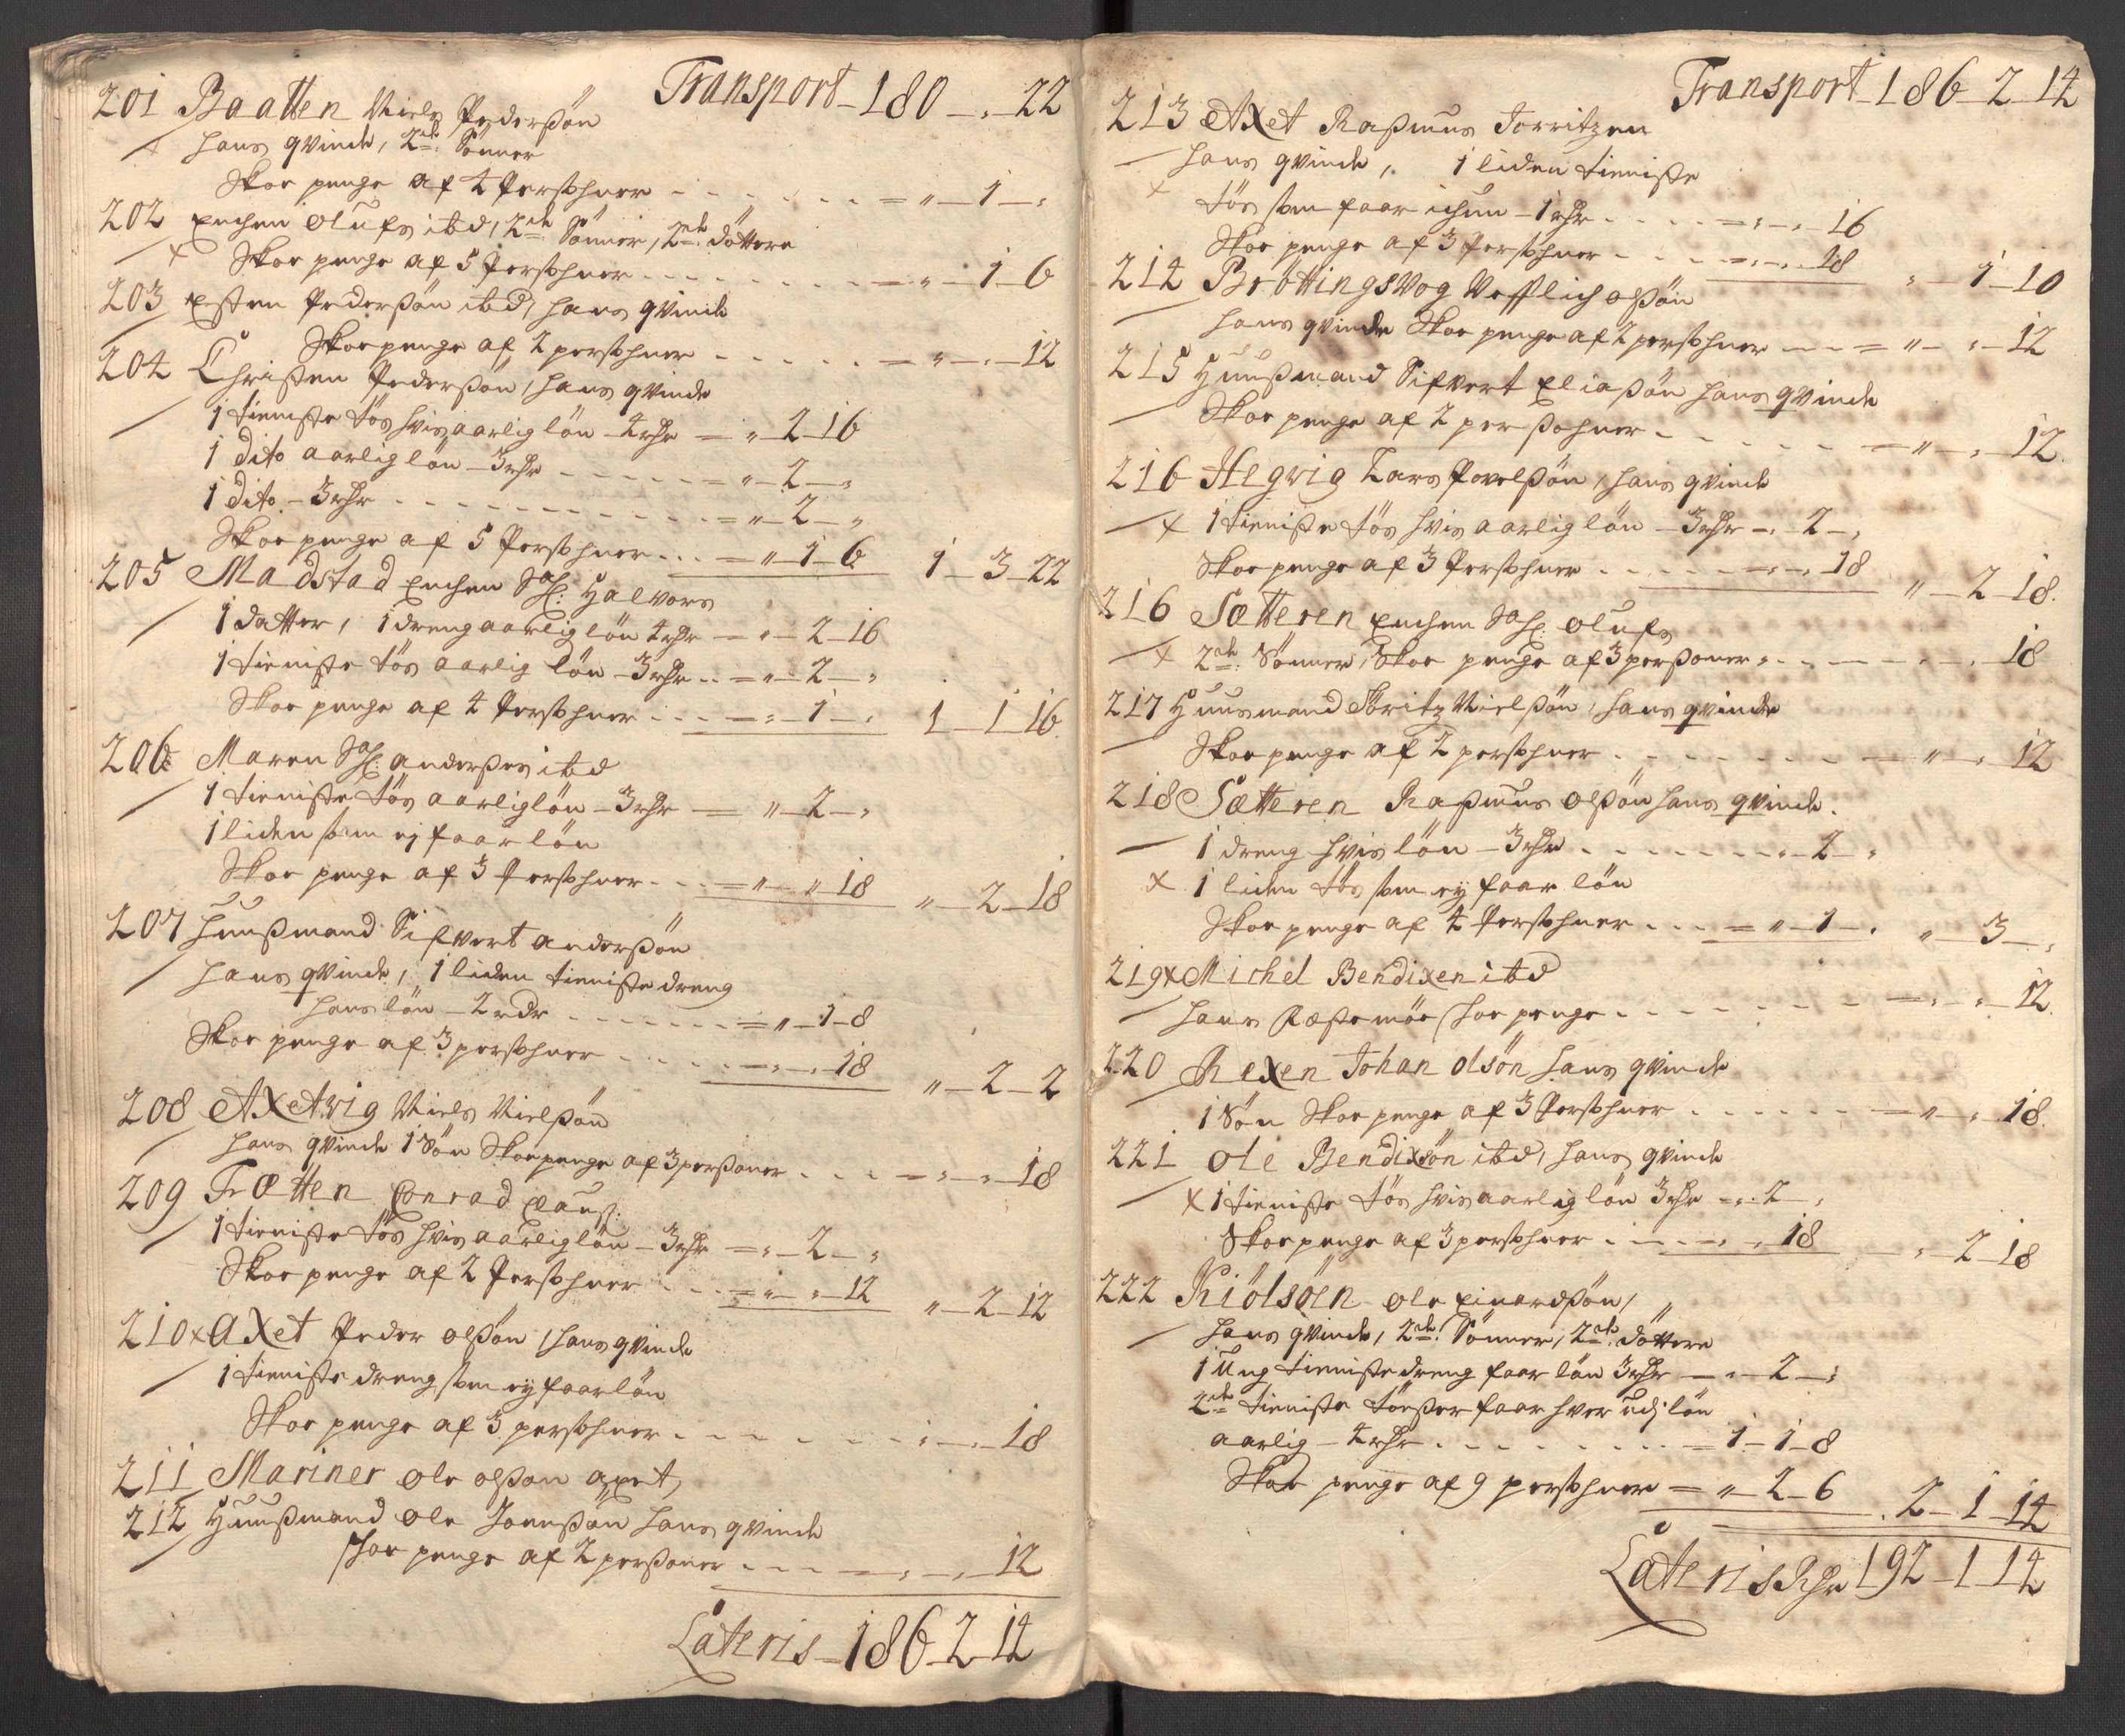 Transport – 180 – „ – 22
201 Baatten Niels Pederßön
hans qvinde, 2de Sönner
Skoe penge af 4 Persohner – – – „ – 1 – „
202 Enchen Olufs ibd, 2de Sönner, 2de döttere
x Skoe penge af 5 Persohner – – – „ – 1 – 6
203 Esten Pederßön ibd, hans qvinde
Skoepenge af 2 persohner – – – „ – „ – 12
204 Christen Pederßön, hans qvinde
1 tieniste tös hvis aarlig lön – 4 rdr – „ 2 – 16
1 dito aarlig lön – 3 rdr – – – „ – 2 – „
1 dito – 3 rdr – – – „ – 2 – „
Skoe penge af 5 Persohner – – „ – 1 – 6 1 – 3 – 22
205 Madstad Enchen Sal: Halvors
1 datter, 1 dreng aarlig lön 4 rdr – „ – 2 – 16
1 tieniste tös aarlig lön – 3 rdr – „ – 2 – „
Skoe penge af 4 Persohner – – – „ – 1 – „ 1 – 1 – 16
206 Maren Sal: anderßes ibd
1 tieniste tös aarlig lön – 3 rdr – „ – 2 – „
1 liden som ej faar lön
Skoe penge af 3 Persohner – – „ – „ 18 „ – 2 – 18
207 Huußmand Sifvert anderßön
hans qvinde, 1 liden tieniste dreng
hans lön – 2 rdr – – – „ – 1 – 8
Skoe penge af 3 persohner – – – „ – 18 „ – 2 – 2
208 AxetVig Niels Nielßön
hans qvinde 1 Sön Skoepenge af 3 persohner – – – „ – „ – 18
209 Trætten Conrad Clauß:
1 tieniste tös hvis aarlig lön – 3 rdr – „ – 2 – „
Skoe penge af 2 Persohner – – „ – „ – 12 „ – 2 – 12
210 x Axet Peder olßön, hans qvinde
1 tieniste dreng som ey faar lön
Skoe penge af 3 persohner – – – „ – „ – 18
211 Mariner ole olßøn axet,
212 Huußmand Ole Joenßøn hans qvinde
Skoe penge af 2 persohner – – – „ – „ – 12
Lateris – 186 – 2 – 14
Transport – 186 – 2 – 14
213 Axet Raßmus Jorritzen
hans qvinde, 1 liden tieniste
x tös som faar ichun – 1 rdr – – – „ – „ – 16
Skoe penge af 3 Persohner – – – „ – 18 „ – 1 – 10
214 Bröttingsvog olßön
hans qvinde Skoe penge af 2 persohner – – „ – „ – 12
215 Huußmand Sifvert Eliaßön hans qvinde
Skoe penge af 2 persohner – – – „ – „ – 12
216 Hegvig Lars Povelßön, hans qvinde
x 1 tieniste tös hvis aarlig lön – 3 rdr – „ 2 – „
Skoe penge af 3 Persohner – – – „ 18 „ – 2 – 18
216 Sætteren Enchen Sal: Olufs
x 2de Sönner, Skoe penge af 3 persohner – – – „ 18
217 Huusmand Nielßön, hans qvinde
Skoe penge af 2 persohner – – – „ – „ 12
218 Sætteren Raßmus Olßön hans qvinde
1 dreng hvis lön – 3 rdr – – – „ – 2 – „
x 1 liden tös som ey faar lön
Skoe penge af 4 Persohner – – – „ – 1 – „ „ – 3 – „
219 x Michel Bendixen ibd
hans Skoe penge – – – „ – „ – 12
220 Rexen Johan Olsön hans qvinde
1 Sön Skoe penge af 3 Persohner – – – „ – „ 18
221 Ole Bendixsön ibd, hans qvinde
x 1 tieniste tös hvis aarlig lön 3 rdr – „ 2 – „
Skoe penge af 3 persohner – – – „ 18 – „ – 2 – 18
222 Kiölsöen ole Einardßön,
hans qvinde, 2de Sönner, 2de döttere
1 Ung tieniste dreng faar lön 3 rdr – „ – 2 – „
2de tieniste tösser faar hver udj lön
aarlig – 4 rdr – – – 1 – 1 – 8
Skoe penge af 9 persohner – „ – 2 – 6 2 – 1 – 14
Lateris Rdr 192 – 1 – 14